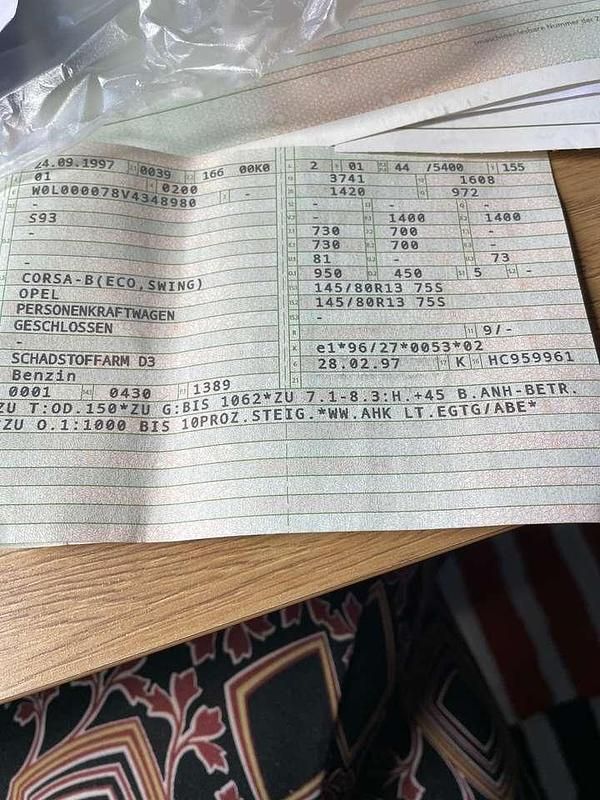 (maschinenlesbare Nummer der Z
24.09.1997 0039 166 00K0 2 01 44 /5400 155
01 0200 3741 1608
W0L000078V4348980 - 1420 972
- - -
S93 - 1400 1400
- 730 700
730 700
- 81 - 73
CORSA-B(ECO,SWING) 950 450 5 -
OPEL 145/80R13 75S
PERSONENKRAFTWAGEN 145/80R13 75S
GESCHLOSSEN -
- 9/-
SCHADSTOFFARM D3 e1*96/27*0053*02
Benzin 28.02.97 K HC959961
0001 0430 1389
ZU T:OD.150*ZU G:BIS 1062*ZU 7.1-8.3:H.+45 B.ANH-BETR.
ZU O.1:1000 BIS 10PROZ.STEIG.*WW.AHK LT.EGTG/ABE*